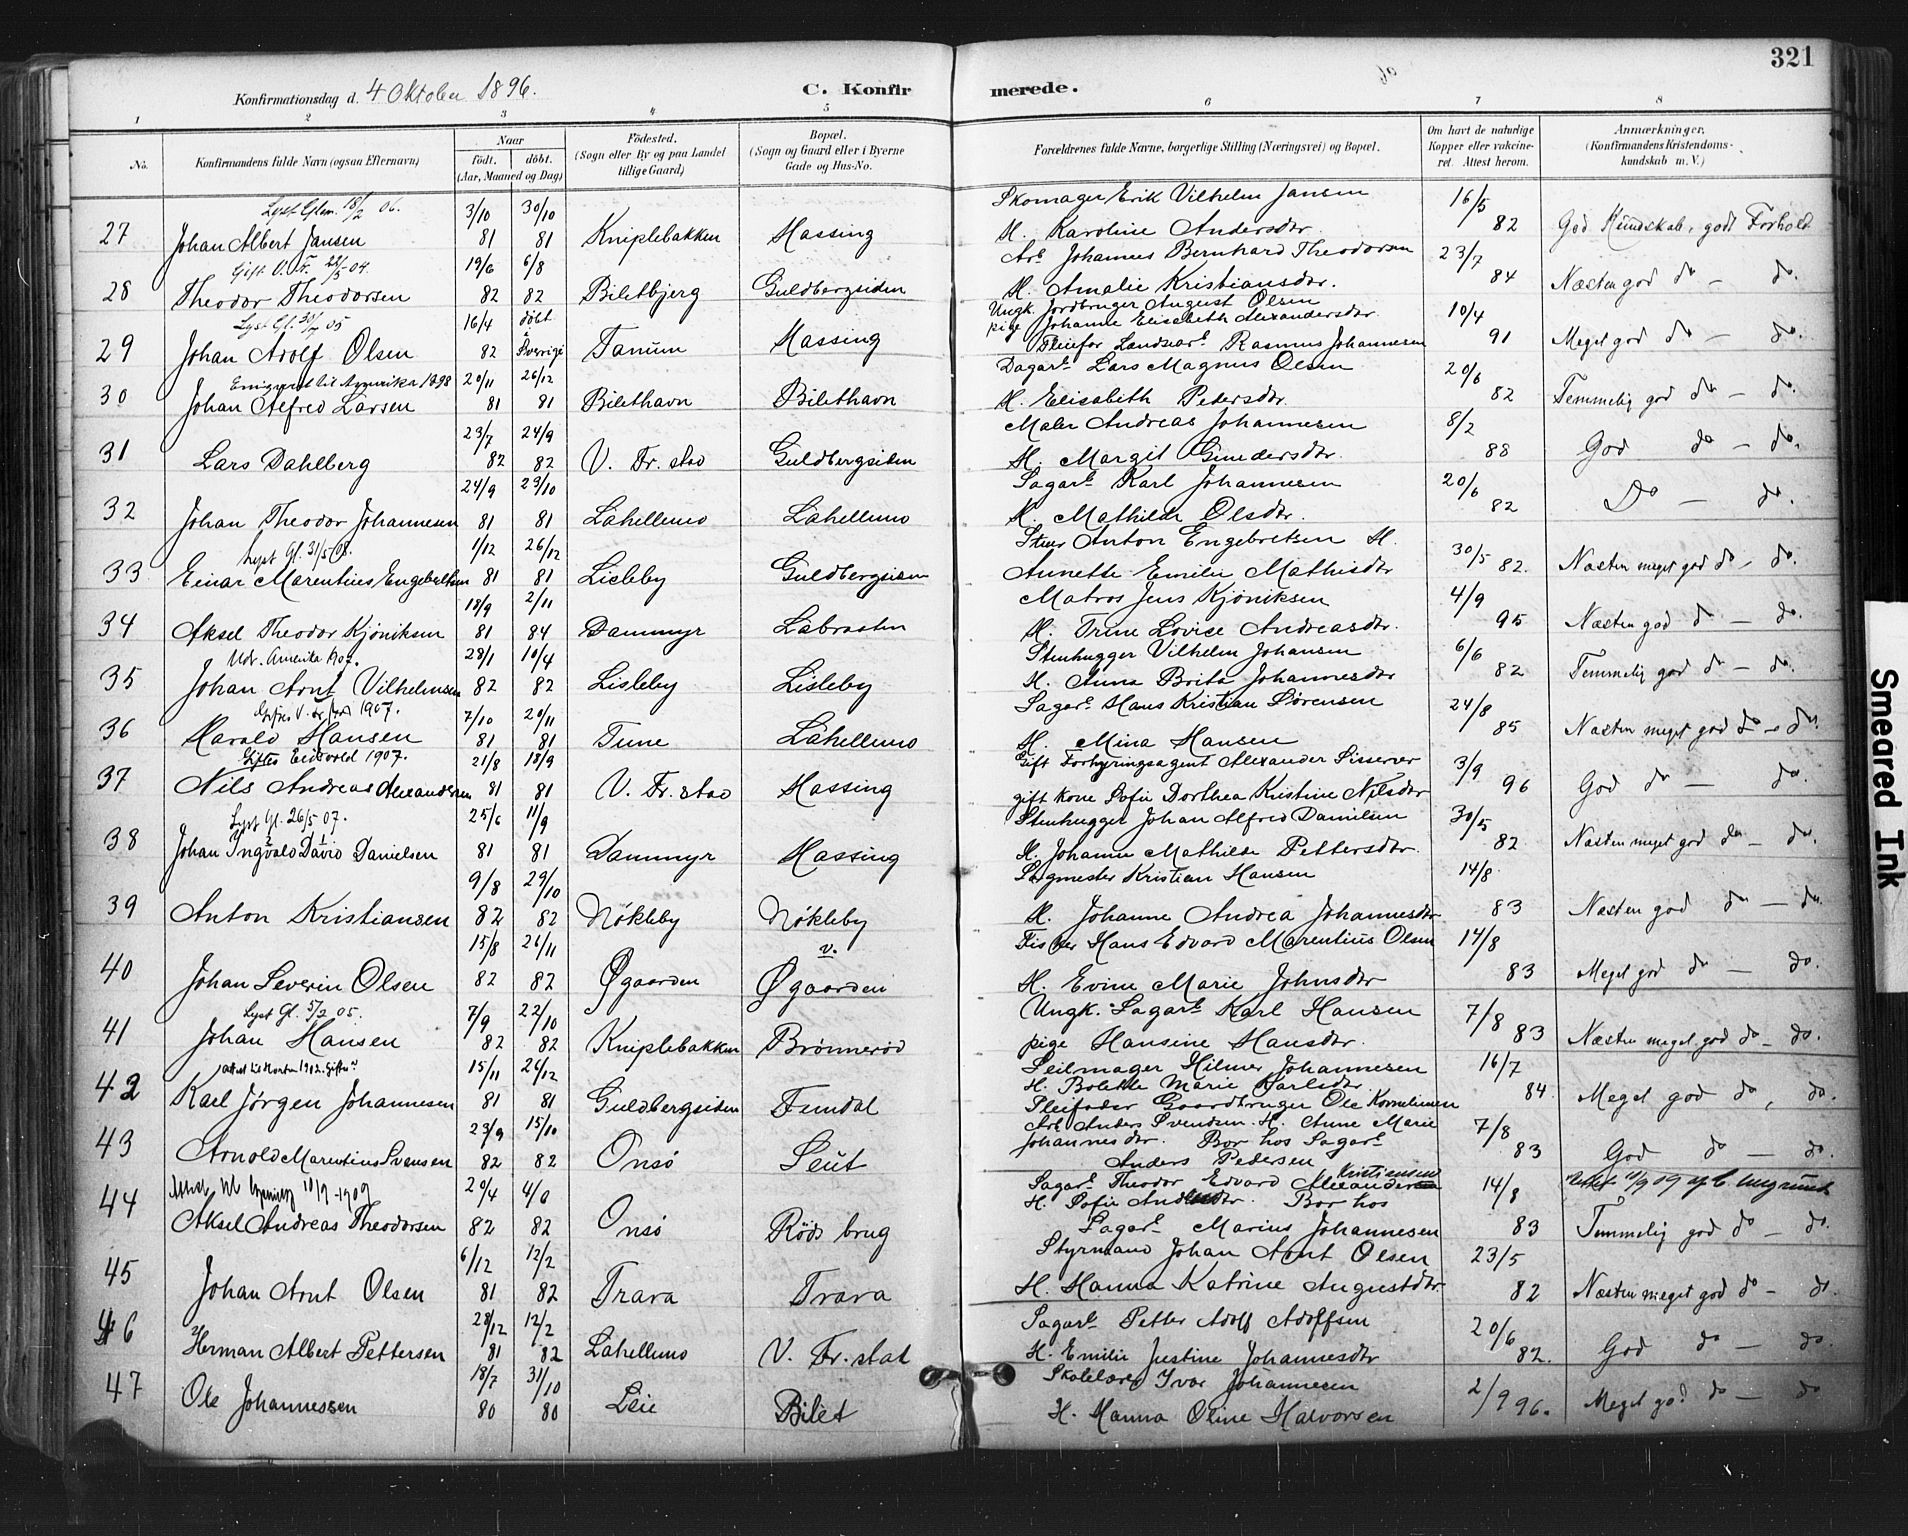 321
Konfirmationsdag d. 4 Oktober 1896.
C. Konfirmerede.
1 2 3 4 5 6 7 8
No. Konfirmandens fulde Navn (ogsaa Efternavn) Naar födt. döbt. (Aar, Maaned og Dag) Födested. (Sogn eller By og paa Landet tillige Gaard) Bopæl. (Sogn og Gaard eller i Byerne Gade og Hus-No. Forældrenes fulde Navne, borgerlige Stilling (Næringsvei) og Bopæl. Om havt de naturlige Kopper eller vaccineret. Attest herom. Anmærkninger, (Konfirmandens Kristendomskundskab m. V.)
Lyst Glem. 18/2 06. 3/10 30/10 Skomager Erik Vilhelm Jansen 16/5
27 Johan Albert Jansen 81 81 Kniplebakken Hassing H. Karoline Andersdtr. 82 God Kundskab, godt Forhold
Gift V. Fr. 22/5 04. 19/6 6/8 Arb. Johannes Bernhard Theodorsen 23/7
28 Theodor Theodorsen 82 82 Biletbjerg Guldbergsiden H. Amalie Kristiansdtr. 84 Næsten god do — do.
Lyst Gl. 30/4 05 16/4 döbt i Ungk. Jordbruger August Olsen 10/4
pige Johanne Elisabeth Alexandersdtr.
29 Johan Adolf Olsen 82 Sverrige Tanum Hassing Pleiefar Landsarb. Rasmus Johannesen 91 Meget god do — do.
Emigreret til Amerika 1898 20/11 26/12 Dagarb. Lars Magnus Olsen 20/6
30 Johan Alfred Larsen 81 81 Bilethavn Bilethavn H. Elisabeth Petersdtr. 82 Temmelig god do — do.
23/7 24/9 Maler Andreas Johannesen 8/2
31 Lars Dahlberg 82 82 V. Fr. stad Guldbergsiden H. Margit Gundersdtr. 88 God do — do.
24/9 23/10 Sagarb. Karl Johannesen 20/6
32 Johan Theodor Johannesen 81 81 Lahellemo Lahellemo H. Mathilde Olsdtr. 82 Do — do.
Lyst Gl. 31/5 08. 1/12 26/12 Stuer Anton Engebretsen H.
33 Einar Marentius Engebretsen 81 81 Lisleby Guldbergsiden Annette Emilie Mathisdtr 30/5 82. Næsten meget god do, do.
18/9 2/11 Matros Jens Kjöniksen 4/9
34 Aksel Theodor Kjöniksen 81 84 Dammyr Labraaten H. Trine Lovice Andreasdtr. 95 Næsten god do — do.
Udv. Amerika 1907. 28/1 10/4 Stenhugger Vilhelm Johansen 6/6
35 Johan Arnt Vilhelmsen 82 82 Lisleby Lisleby H. Anna Brita Johannesdtr 82 Temmelig god do — do.
1907. 7/10 20/11 Sagarb. Hans Kristian Sörensen 24/8
36 Harald Hansen 81 81 Tune Lahellemo H. Mina Hansen 85 Næsten meget god do — do.
Giftes Eidsvold 1907. 21/8 18/9 Gift Forhyringsagent Alexander Sisserer 3/9
37 Nils Andreas Alexandersen 81 81 V. Fr. stad Hassing gift kone Sofie Dorthea Kristine Nilsdtr 96 God do — do.
Lyst Gl. 26/5 07. 25/6 11/9 Stenhugger Johan Alfred Danielsen 30/5
38 Johan Ingvald David Danielsen 81 81 Dammyr Hassing H. Johanne Mathilde Pettersdtr. 82 Næsten meget god do — do.
9/8 29/10 Sagmester Kristian Hansen 14/8
39 Anton Kristiansen 82 82 Nökleby Nökleby H. Johanne Andrea Johannesdtr 83 Næsten god do — do.
15/8 26/11 v. Fisker Hans Edvard Marentius Olsen 14/8
40 Johan Severin Olsen 82 82 Øgaarden Øgaarden H. Evine Marie Johnsdtr 83 Meget god do — do.
Lyst Gl. 5/2 05. 7/9 22/10 Ungk. Sagarb. Karl Hansen 7/8
41 Johan Hansen 82 82 Kniplebakken Brönneröd pige Hansine Hansdtr. 83 Næsten meget god do — do.
attest til Horten 1902. giftes 15/11 26/12 Seilmager Hilmer Johannesen 16/7
H. Bolette Marie Karlsdtr.
42 Karl Jörgen Johannesen 81 81 Guldbergsiden Femdal Pleifader Gaardbruger Ole Kornelius​en 84 Meget god do, do.
23/9 15/10 Arb. Anders Svendsen. H. Anne Marie 7/8
Johannesdtr. Bor hos Sagarb.
43 Arnold Marentius Svensen 82 82 Onsö Leut Anders Pedersen 83 God do — do.
10/9-1909 20/4 4/6 Sagarb. Theodor Edvard Alexandersen Kristiansen 14/8
H. Sofie Andersdtr. Bor hos
44 Aksel Andreas Theodorsen 82 82 Onsö Röds brug Sagarb. Marius Johannesen 83 Temmelig god do — do.
6/12 12/2 Styrmand Johan Arnt Olsen 23/5
45 Johan Arnt Olsen 81 82 Trara Trara H. Hanna Katrine Augustdtr. 82 Næsten meget god do — do.
28/12 12/2 Sagarb. Petter Adolf Adolfsen 20/6
46 Herman Albert Pettersen 81 82 Lahellemo V. Fr. stad H. Emilie Justine Johannesdtr 82. God do — do.
18/7 31/10 Skolelærer Ivar Johannesen
47 Ole Johannessen 80 80 Leie Bilet H. Hanna Oline Halvorsen 2/9 96. Meget god do — do
Smeared Ink